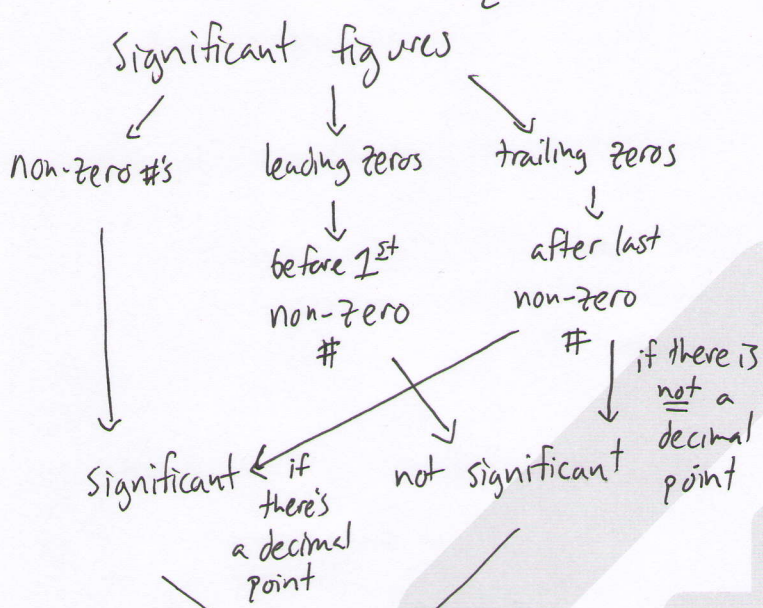 Significant figures
non-zero #'s
leading zeros
trailing zeros
before 1st
non-zero
#
after last
non-zero
#
if there is
not a
decimal
point
significant
if
there's
a decimal
point
not significant